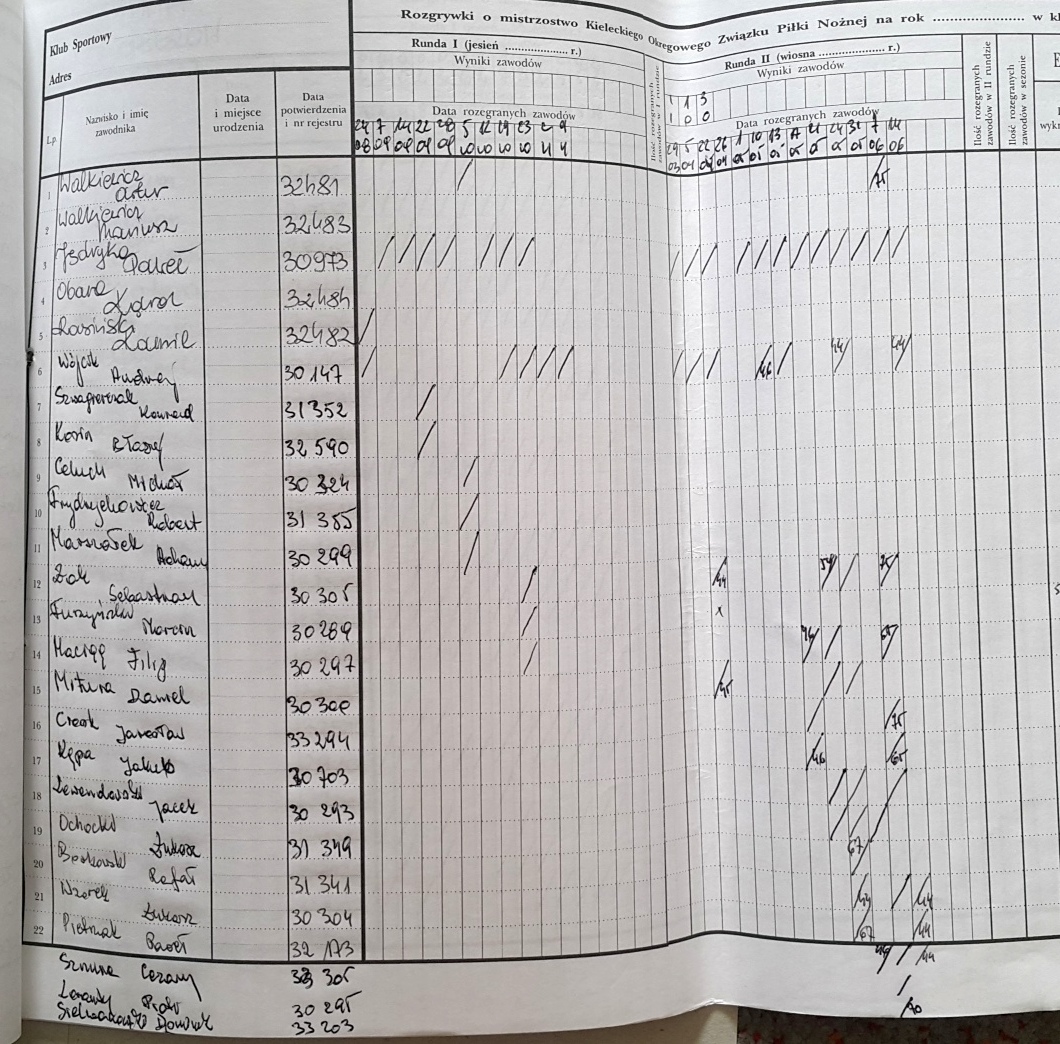 Rozgrywki o mistrzostwo Kieleckiego Okręgowego Związku Piłki Nożnej na rok .................... w kl
Klub Sportowy
Adres
Runda I (jesień .................... r.)
Wyniki zawodów
Data rozegranych zawodów
Runda II (wiosna .................... r.)
Wyniki zawodów
1 1 3
1 0 0
Data rozegranych zawodów
Ilość rozegranych zawodów w II rundzie
Ilość rozegranych zawodów w sezonie
Lp. Nazwisko i imię zawodnika
Data i miejsce urodzenia
Data potwierdzenia i nr rejestru
24 7 14 22 28 5 12 19 23 2 9
08 09 09 09 09 10 10 10 10 11 11
29 5 22 26 1 10 13 17 21 24 31 7 14
03 04 04 04 05 05 05 05 05 05 05 06 06
1 Walkiewicz Artur 32481 75
2 Walkiewicz Mariusz 32483
3 Paweł 30973
4 Obara Karol 32484
5 Kamil 32482
6 Wójcik Andrzej 30147 46 44 44
7 Konrad 31352
8 Korin Błażej 32 590
9 Celuch Michał 30 324
10 Frydrychowicz Robert 31 385
11 Marszałek Adam 30 299
12 Żak Sebastian 30 305 44 75
13 Marcin 30 289 x
14 Maciąg Filip 30 297
15 Mitura Daniel 30 300 45
16 Jarosław 33 294 75
17 Kępa Jakub 30 703 46 65
18 Lewandowski Jacek 30 293
19 Ochocki Łukasz 31 349
20 Borkowski Rafał 31 341 67
21 Wzorek Łukasz 30 304 44 44
22 Pietrzak Paweł 32 173 67 44
Cezary 33 305 44
Piotr 30 295
Dominik 33 203